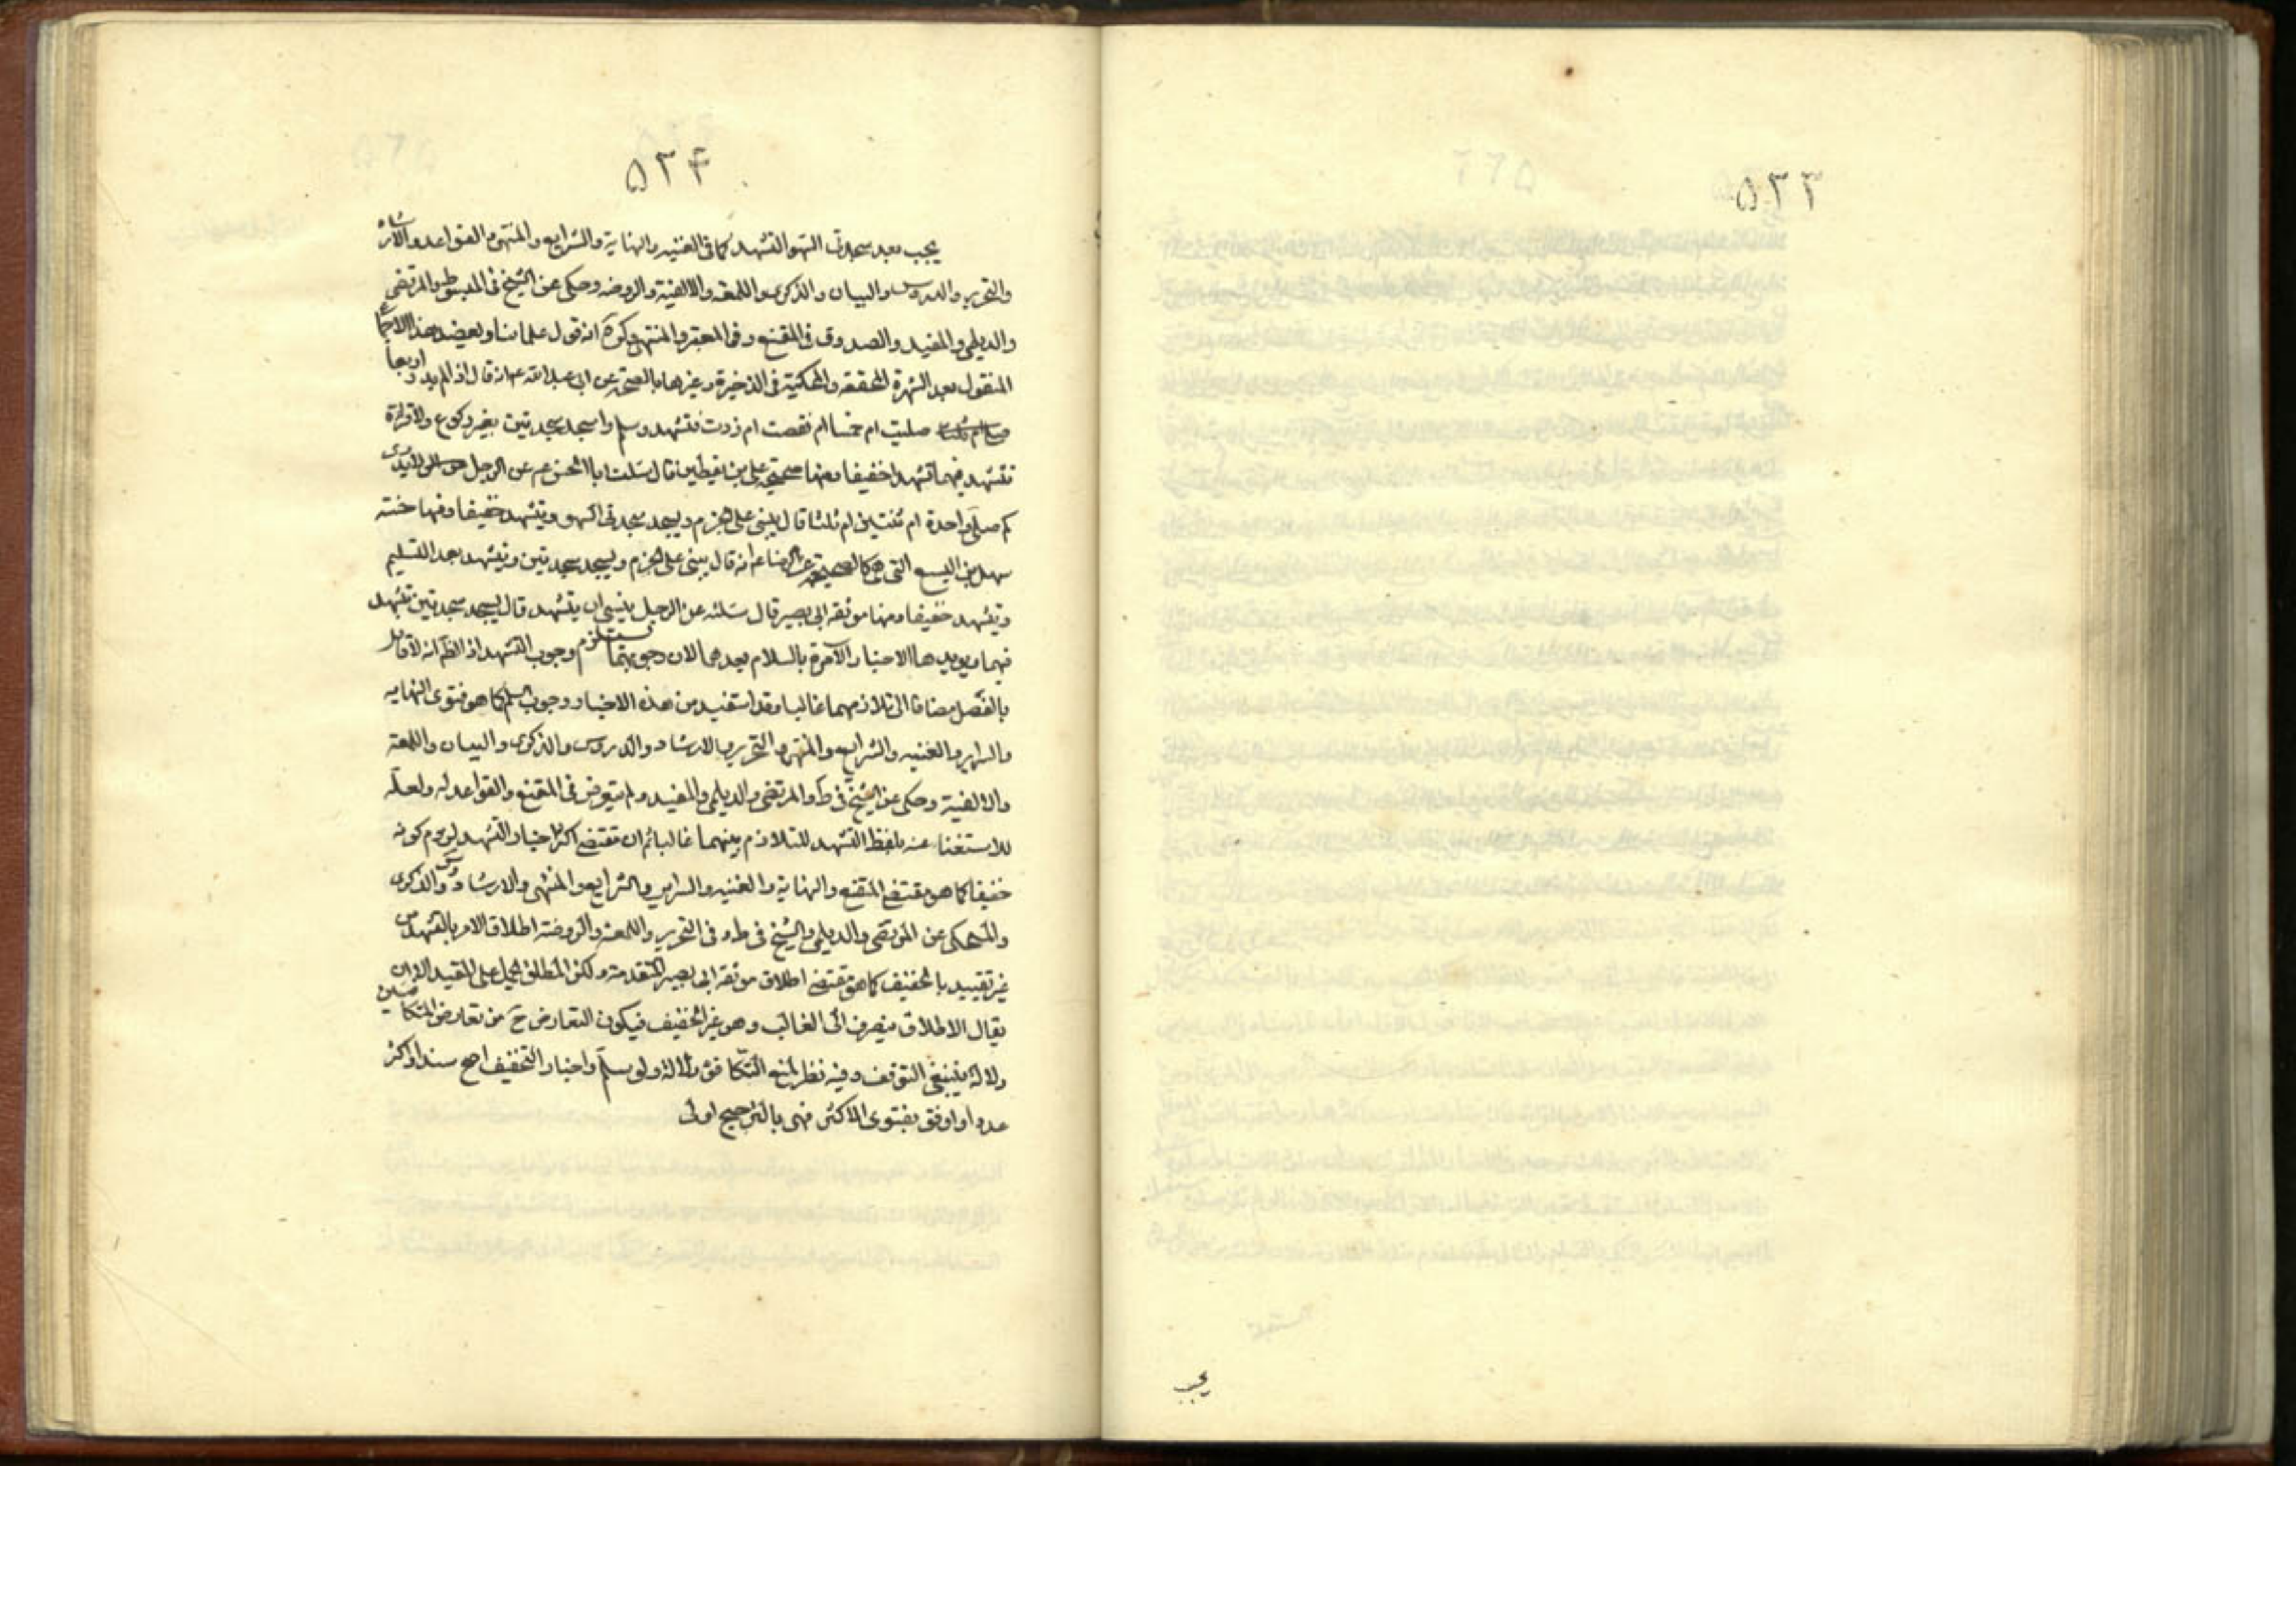 ۵۲۳
يجب
۵۲۴
يجب بعد سجدتى السهو التشهد كما فى الغنيه والنهاية والشرايع والمنتهى والقواعد والارشاد
والتحرير والدروس والبيان والذكرى واللمعه والالفية والروضه وحكى عن الشيخ فى المبسوط والمرتضى
والديلمى والمفيد والصدوق فى المقنع وفى المعتبر والمنتهى وكرة انه قول علمائنا ويعضد هذا الاجماع
المنقول بعد الشهرة المحققه والمحكية فى الذخيرة وغيرها بالصحة عن ابى عبد الله ع انه قال اذا لم يدر اربعا
صليت ام خمسا ام نقصت ام زدت فتشهد وسلم واسجد سجدتين بغير ركوع ولا قراءة
تتشهد فيهما تشهدا خفيفا ومنها صحيحة على بن يقطين قال سئلت ابا الحسن ع عن الرجل لا يدرى
كم صلى واحدة ام ثنتين ام ثلثا قال يبنى على الجزم ويسجد سجدتى السهو ويتشهد خفيفا وفيها حسنه
سهل بن اليسع التى هى كالصحيحة عن الرضا ع انه قال يبنى على الجزم ويسجد سجدتين ويتشهد بعد التسليم
ويتشهد خفيفا ومنها موثقه ابى بصير قال سئلته عن الرجل ينسى ان يتشهد قال يسجد سجدتين يتشهد
فيهما ويويدها الاخبار الآمرة بالسلام بعدهما لان وجوبها يستلزم وجوب التشهد اذ الظ انه لا قائل
بالفصل مضافا الى تلازمهما غالبا وقد استفيد من هذه الاخبار وجوب السلم كما هو فتوى النهايه
والسراير والغنيه والشرايع والمنتهى والتحرير والارشاد والدروس والذكرى والبيان واللمعة
والالفية وحكى عن الشيخ فى ط والمرتضى والديلمى والمفيد ولم يتعرض فى المقنع والقواعد له ولعله
للاستغناء عنه بلفظ التشهد للتلازم بينهما غالبا ثم ان مقتضى اكثر اخبار التشهد لزوم كونه
خفيفا كما هو مقتضى المقنع والنهاية والغنيه والسراير والشرايع والمنتهى والارشاد وس والذكرى
والمحكى عن المرتضى والديلمى والشيخ فى ط و فى التحرير واللمعه والروضة اطلاق الامر بالتشهد من
غير تقييد بالخفيف كما هو مقتضى اطلاق موثقه ابى بصير المتقدمة ولكن المطلق يحمل على المقيد الا ان
يقال الاطلاق ينصرف الى الغالب وهو غير الخفيف فيكون التعارض ح من تعارض المتكافئين
دلالة فينبغى التوقف وفيه نظر لمنع التكافؤ دلالة ولو سلم واخبار التخفيف اصح سندا واكثر
عددا واوفق بفتوى الاكثر فهى بالترجيح اولى